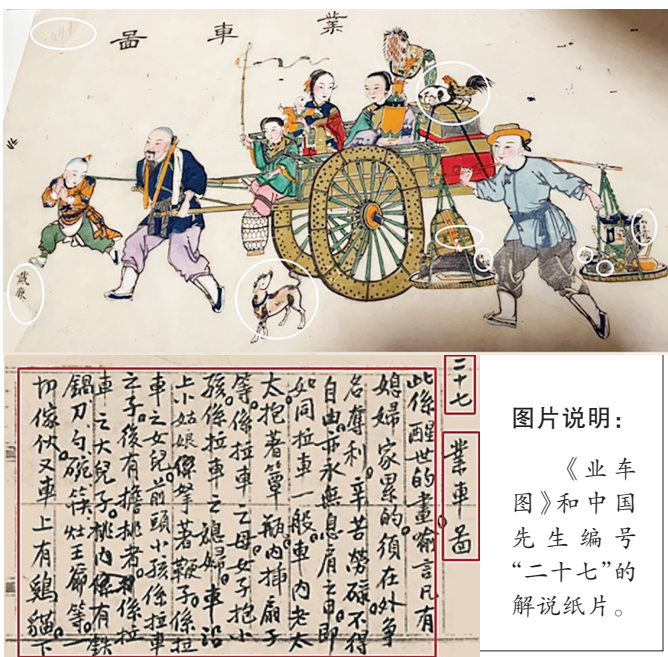 業車啚
戴廉
二十七
業車啚
此係醒世的畫喻言凡有
媳婦家累的須在外爭
名奪利辛苦勞碌不得
自由亦永無息肩之日即
如同拉車一般。車內老太
太抱著簞瓶內插扇子
等。係拉車之母女子抱小
孩。係拉車之媳婦。車沿
上小姑娘拏著鞭子。係拉
車之女兒。前頭小孩係拉車
之子。後有擔挑者係拉
車之大兒子。挑內係有鉄
鍋刀勺碗筷灶王爺等。一
切傢伙又車上有鷄貓下
图片说明：
《业车
图》和中国
先生编号
“二十七”的
解说纸片。